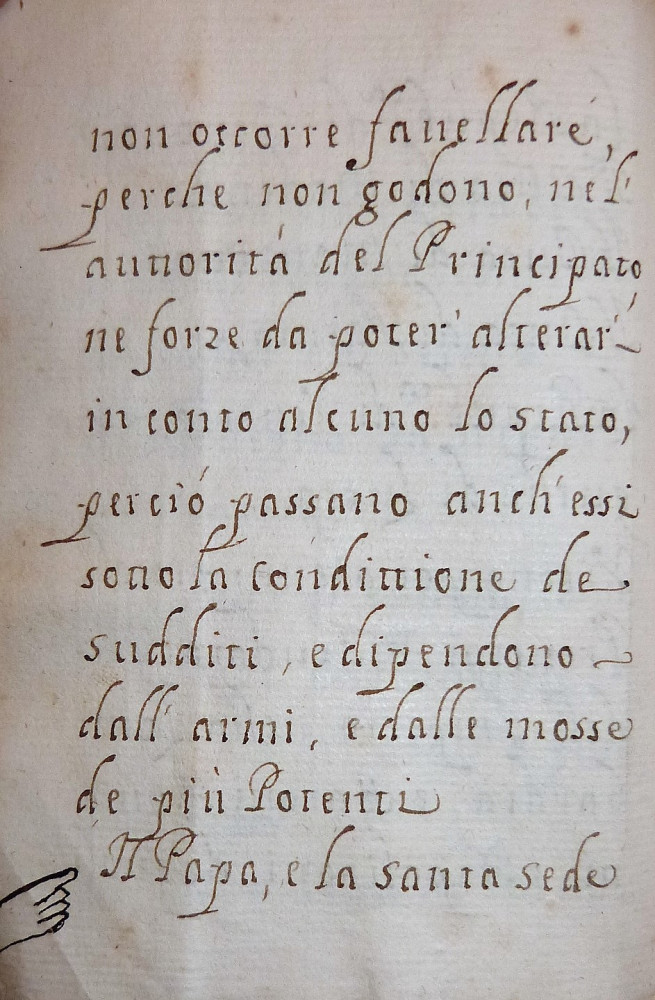 non occorre fauellare,
perche non godono, nell'
auttorità del Principato
ne forze da poter' alterar'
in conto alcuno lo stato,
perciò passano anch'essi
sotto la condittione de
sudditi, e dipendono
dall' armi, e dalle mosse
de più Potenti
Il Papa, e la santa sede